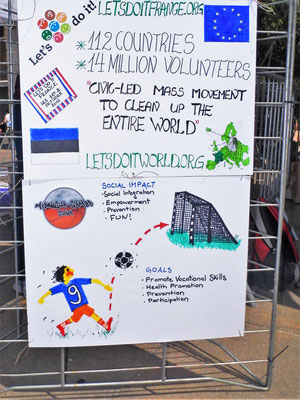 Let's do it!
LETSDOITFRANCE.ORG
* 112 COUNTRIES
* 14 MILLION VOLUNTEERS
"CIVIC-LED MASS MOVEMENT
TO CLEAN UP THE
ENTIRE WORLD"
LETSDOITWORLD.ORG
SOCIAL IMPACT
• Social Integration
• Empowerment
• Prevention
• FUN!
9
GOALS
• Promote Vocational Skills
• Health Promotion
• Prevention
• Participation